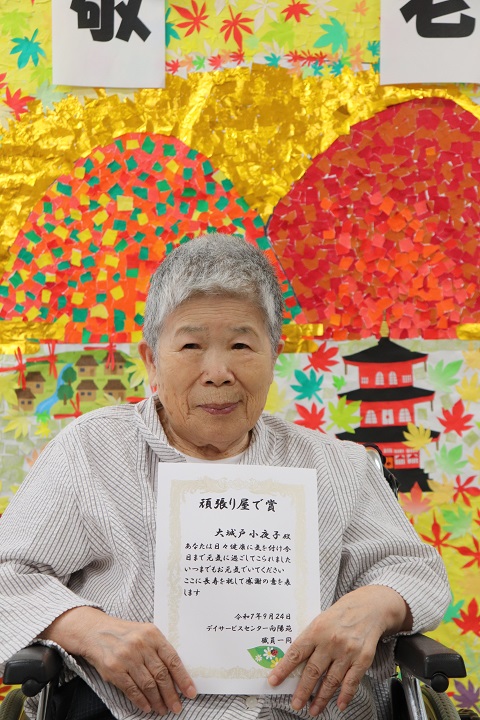 敬
老
頑張り屋で賞
大城戸小夜子殿
あなたは日々健康に気を付け今
日まで元気に過ごしてこられました
いつまでもお元気でいてください
ここに長寿を祝して感謝の意を表
します
令和7年9月24日
デイサービスセンター向陽苑
職員一同